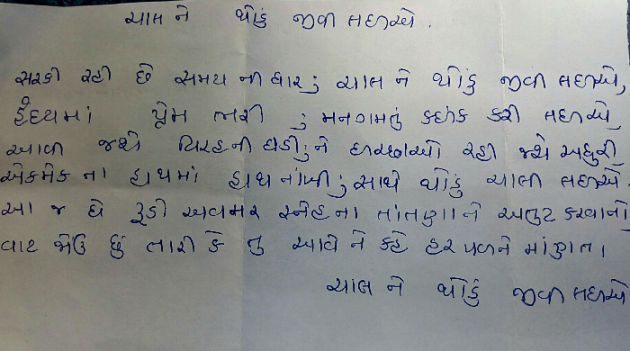 ચાલ ને થોડું જીવી લઈએ.
સરકી રહી છે સમય ની ધાર; ચાલ ને થોડું જીવી લઈએ,
હૃદયમાં પ્રેમ ભરી ; મનગમતું કઇંક કરી લઈએ,
આવી જશે વિરહની ઘડી; ને ઇચ્છાઓ રહી જશે અધુરી
એકમેક ના હાથમાં હાથ નાંખી; સાથે થોડું ચાલી લઈએ.
આ જ છે રૂડો અવસર સ્નેહના તાંતણાને અતુટ કરવાનો
વાટ જોઉ છું તારી કે તુ આવે ને કહે હર પળને માંણતા
ચાલ ને થોડું જીવી લઈએ